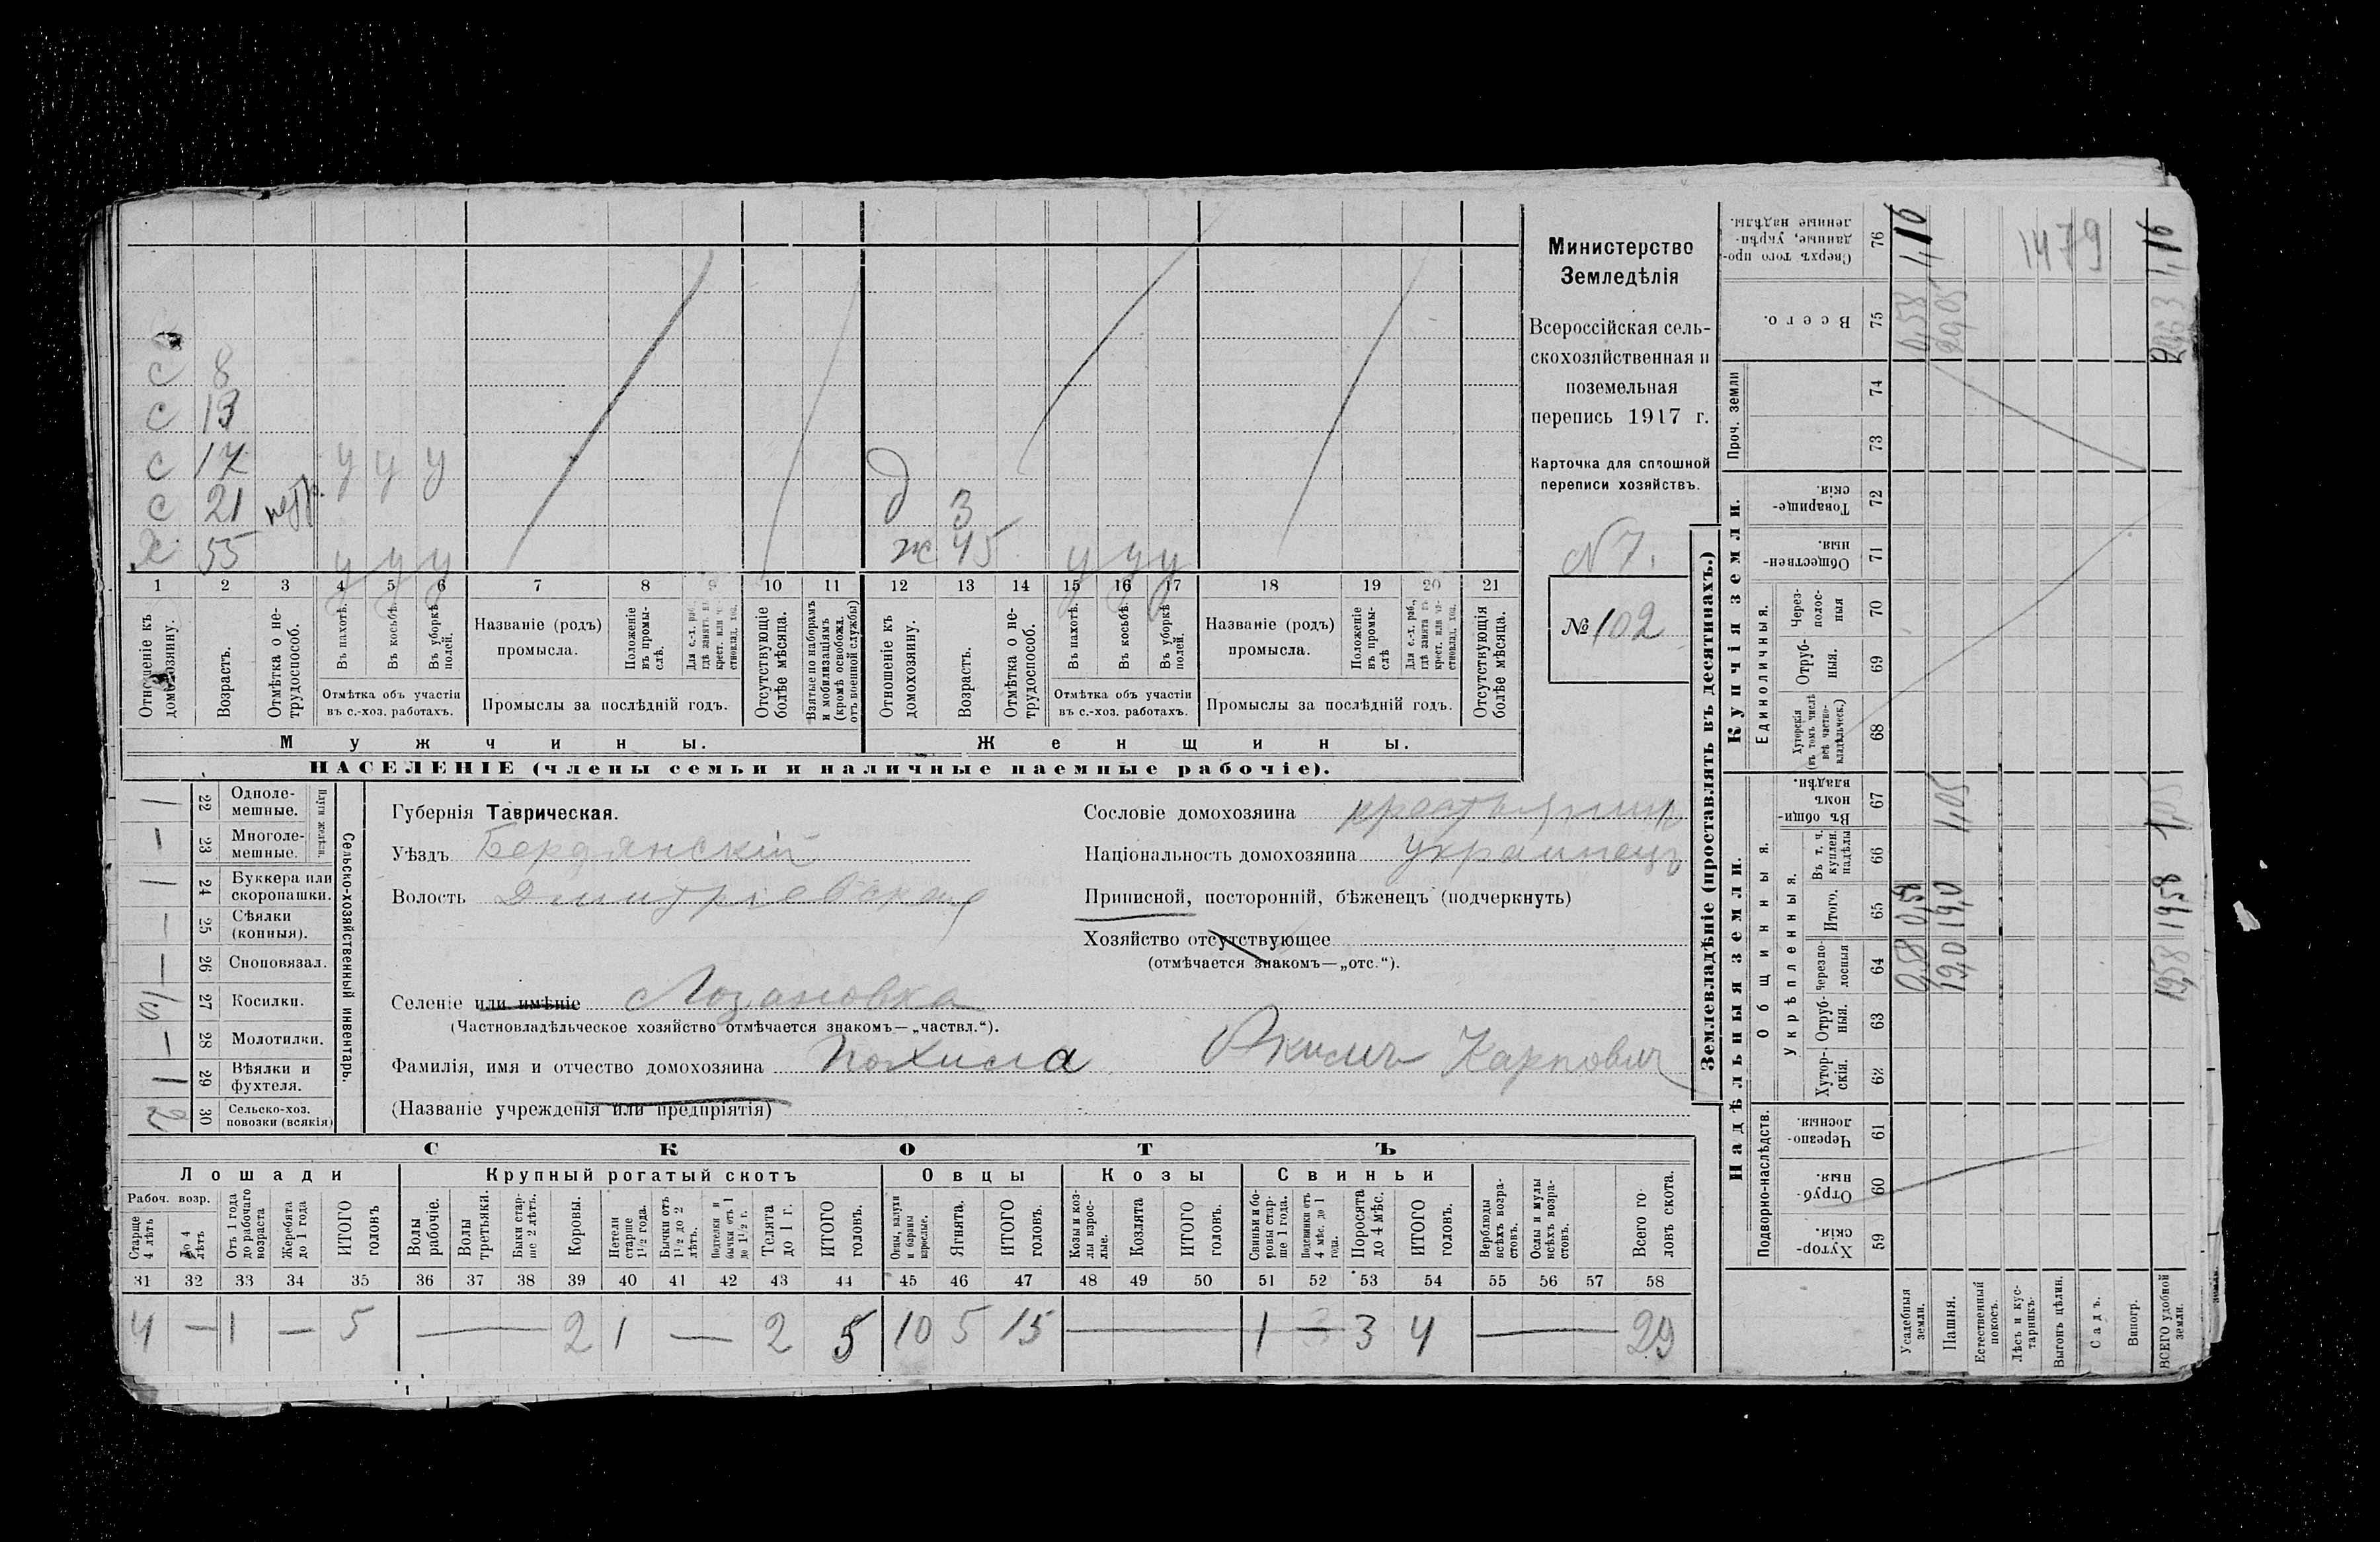 С 8
С 13
С 17 У У У
С 21 нетр.
Х 55 У У У
д 3
ж 45 У У У
1 2 3 4 5 6 7 8 9 10 11 12 13 14 15 16 17 18 19 20 21
Отношеніе къ домохозяину.
Возрастъ.
Отмѣтка о не-трудоспособ.
Въ пахотѣ.
Въ косьбѣ.
Въ уборкѣ полей.
Отмѣтка объ участіи
въ с.-хоз. работахъ.
Названіе (родъ)
промысла.
Положеніе въ промы-слѣ.
Промыслы за послѣдній годъ.
Отсутствующіе болѣе мѣсяца.
Взятые по наборамъ и мобилизаціямъ (кромѣ освобожд. отъ военной службы)
Отношеніе къ домохозяину.
Возрастъ.
Отмѣтка о не-трудоспособ.
Въ пахотѣ.
Въ косьбѣ.
Въ уборкѣ полей.
Отмѣтка объ участіи
въ с.-хоз. работахъ.
Названіе (родъ)
промысла.
Положеніе въ промы-слѣ
Промыслы за послѣдній годъ.
Отсутствующія болѣе мѣсяца.
Мужчины.
Женщины.
НАСЕЛЕНІЕ (члены семьи и наличные наемные рабочіе).
Министерство
Земледѣлія
Всероссійская сель-
скохозяйственная и
поземельная
перепись 1917 г.
Карточка для сплошной
переписи хозяйствъ.
N 7.
№ 102
Плуги желѣзн.
Сельско-хозяйственный инвентарь.
1 22 Одноле-мешные.
— 23 Многоле-мешные.
— 24 Буккера или скоропашки.
— 25 Сѣялки (конныя).
— 26 Сноповязал.
27 Косилки.
— 28 Молотилки.
1 29 Вѣялки и фухтеля.
2 30 Сельско-хоз. повозки (всякія)
Губернія Таврическая.
Уѣздъ Бердянскій
Волость Дмитріевская
Селеніе или имѣніе Лозановка
(Частновладѣльческое хозяйство отмѣчается знакомъ—„частвл.“).
Фамилія, имя и отчество домохозяина Похила Акимъ Карпович
(Названіе учрежденія или предпріятія)
Сословіе домохозяина крестьянин
Національность домохозяина украинецъ
Приписной, посторонній, бѣженецъ (подчеркнуть)
Хозяйство отсутствующее
(отмѣчается знакомъ—„отс.“).
СКОТЪ
Лошади Крупный рогатый скотъ Овцы Козы Свиньи
Рабоч. возр.
Старше 4 лѣтъ
До 4 лѣтъ
Отъ 1 года до рабочаго возраста
Жеребята до 1 года
ИТОГО головъ
Волы рабочіе.
Волы третьяки.
Быки стар-ше 2 лѣтъ.
Коровы.
Нетели старше 1½ года.
Бычки отъ 1½ до 2 лѣтъ.
Подтелки и бычки отъ 1 до 1½ г.
Телята до 1 г.
ИТОГО головъ.
Овцы, валухи и бараны взрослые.
Ягнята.
ИТОГО головъ.
Козы и коз-лы взрос-лые.
Козлята
ИТОГО головъ.
Свиньи и бо-ровы стар-ше 1 года.
Подсвинки отъ 4 мѣс. до 1 года.
Поросята до 4 мѣс.
ИТОГО головъ.
Верблюды всѣхъ возра-стовъ.
Ослы и мулы всѣхъ возра-стовъ.
Всего го-ловъ скота.
31 32 33 34 35 36 37 38 39 40 41 42 43 44 45 46 47 48 49 50 51 52 53 54 55 56 57 58
4 — 1 — 5 — 2 1 — 2 5 10 5 15 — 1 — 3 4 — 29
Землевладѣніе (проставлять въ десятинахъ.)
Надѣльныя земли.
Купчія земли.
Проч. земли
Подворно-наслѣдств.
Общинныя.
Укрѣпленныя.
Единоличныя.
Хутор-скія. 59
Отруб-ныя. 60
Черезпо-лосныя 61
Хутор-скія. 62
Отруб-ныя. 63
Черезпо-лосныя 64
Итого. 65
Въ т. ч. куплен. надѣлы 66
Въ общи-номъ владѣн. 67
Хуторскія (въ томъ числѣ всѣ частно-владѣльческ.) 68
Отруб-ныя. 69
Через-полос-ныя 70
Обществен-ныя. 71
Товарище-скія. 72
73
74
Всего. 75
Сверхъ того про-данные, укрѣп-ленные надѣлы. 76
Усадебныя земли. 0,58 0,58 0,58 1,16
Пашня. 19,0 19,0 1,05 20,05
Естественный покосъ.
Лѣсъ и кус-тарникъ.
Выгонъ цѣлин.
Садъ.
Виногр.
ВСЕГО удобной земли. 19,58 19,58 1,05 1,16
1479